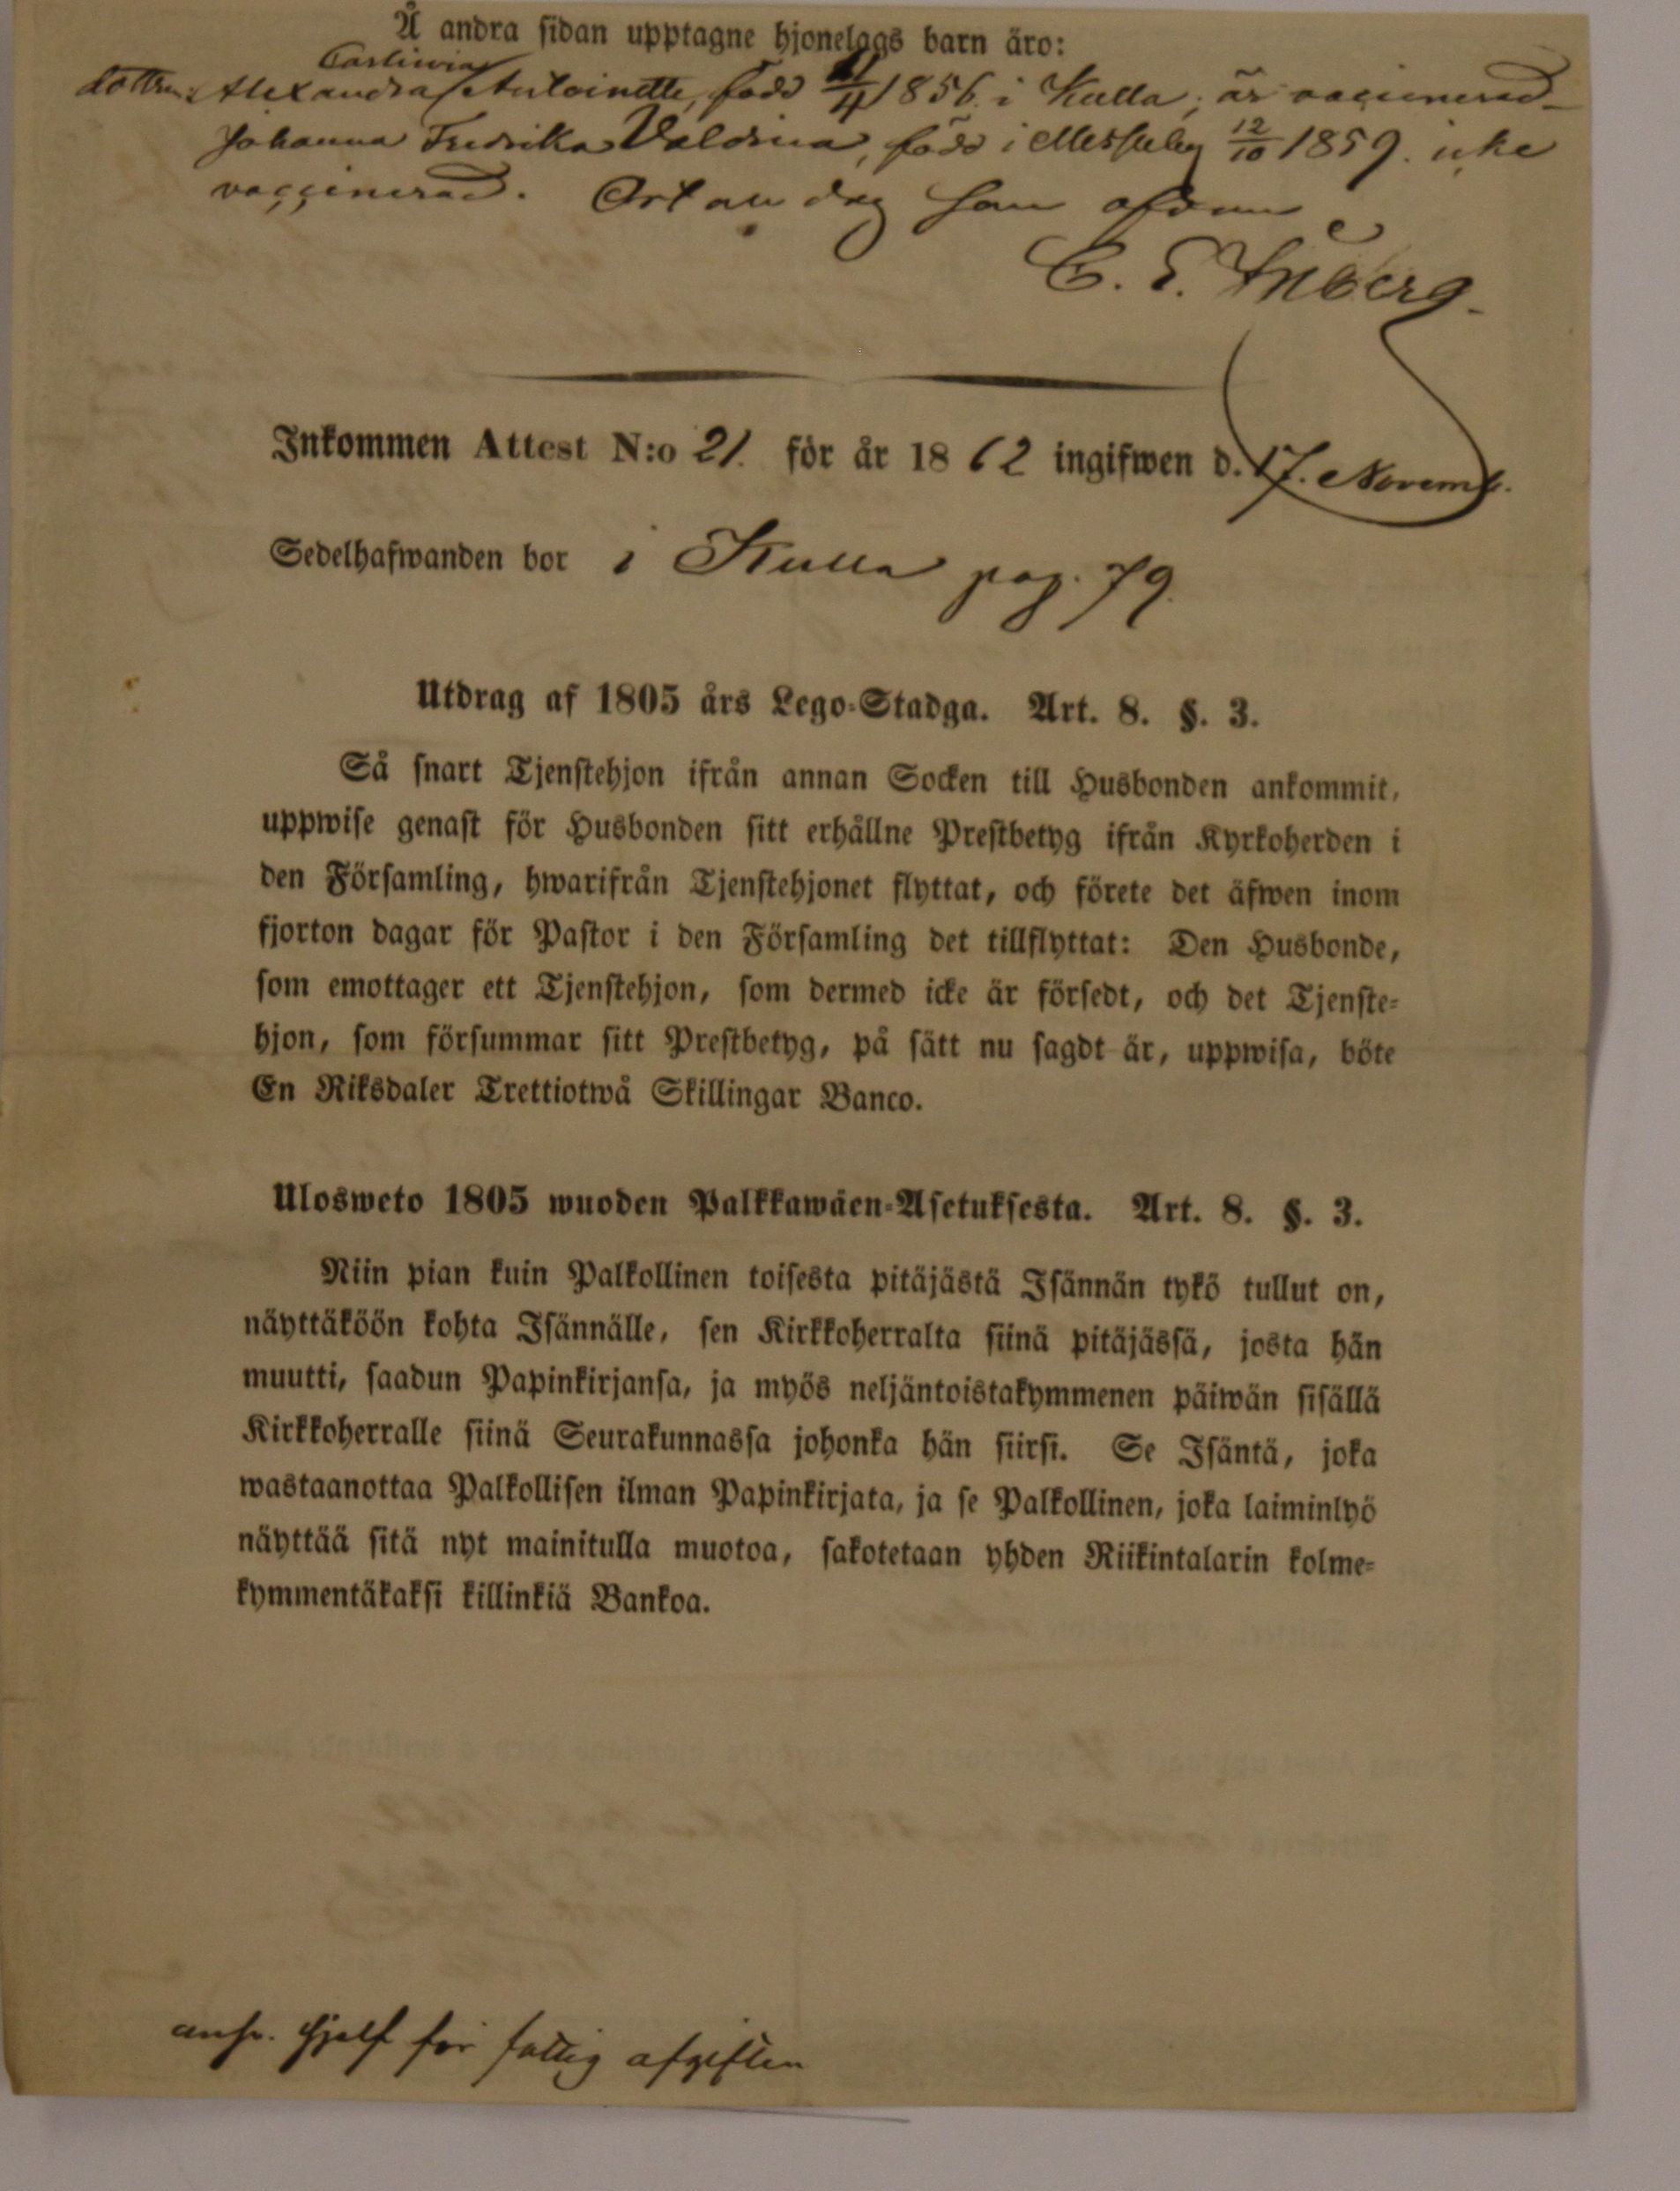 Å andra sidan upptagne hjonelags barn äro:
Carliina
döttrar: Alexandra Antoinette, född 11/4 1856 i Kulla, är vaccinerad
Johanna Fredrika Valdrina, född i Messuby 12/10 1859. icke
vaccinerad. Ort och dag som ofvan
C. E. Inberg.
Inkommen Attest N:o 21. för år 1862 ingifwen d. 17. Novemb.
Sedelhafwanden bor i Kulla pag. 79.
Utdrag af 1805 års Lego-Stadga. Art. 8. §. 3.
Så snart Tjenstehjon ifrån annan Socken till Husbonden ankommit,
uppwise genast för Husbonden sitt erhållne Prestbetyg ifrån Kyrkoherden i
den Församling, hwarifrån Tjenstehjonet flyttat, och förete det äfwen inom
fjorton dagar för Pastor i den Församling det tillflyttat: Den Husbonde,
som emottager ett Tjenstehjon, som dermed icke är försedt, och det Tjenste-
hjon, som försummar sitt Prestbetyg, på sätt nu sagdt är, uppwisa, böte
En Riksdaler Trettiotwå Skillingar Banco.
Ulosweto 1805 wuoden Palkkawäen-Asetuksesta. Art. 8. §. 3.
Niin pian kuin Palkollinen toisesta pitäjästä Isännän tykö tullut on,
näyttäköön kohta Isännälle, sen Kirkkoherralta siinä pitäjässä, josta hän
muutti, saadun Papinkirjansa, ja myös neljäntoistakymmenen päiwän sisällä
Kirkkoherralle siinä Seurakunnassa johonka hän siirsi. Se Isäntä, joka
wastaanottaa Palkollisen ilman Papinkirjata, ja se Palkollinen, joka laiminlyö
näyttää sitä nyt mainitulla muotoa, sakotetaan yhden Riikintalarin kolme-
kymmentäkaksi killinkiä Bankoa.
ansv. sjelf för fattig afgiften